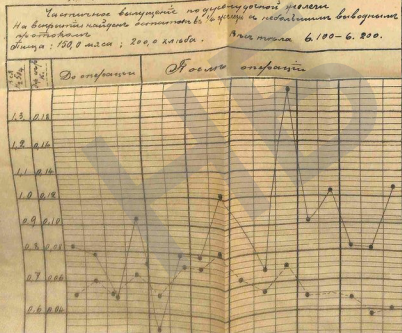 Частичное вылущение поджелудочной железы
На вскрытии найден остаток в ⅓ железы с небольшим выводным
протоком.
Пища: 150,0 мяса; 200,0 хлеба. Вес 6.100–6.200.
До операции После операции
1,3 0,18
1,2 0,16
1,1 0,14
1,0 0,12
0,9 0,10
0,8 0,08
0,7 0,06
0,6 0,04
НБ